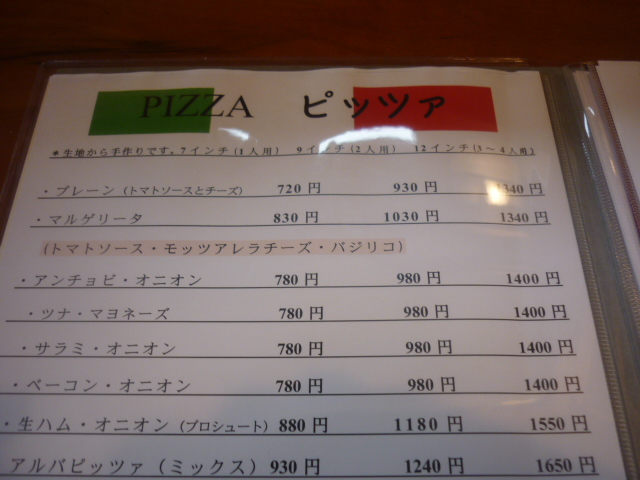 PIZZA ピッツァ
*生地から手作りです。7インチ(1人用) 9インチ(2人用) 12インチ(3〜4人用)
・プレーン(トマトソースとチーズ) 720円 930円 1340円
・マルゲリータ 830円 1030円 1340円
(トマトソース・モッツアレラチーズ・バジリコ)
・アンチョビ・オニオン 780円 980円 1400円
・ツナ・マヨネーズ 780円 980円 1400円
・サラミ・オニオン 780円 980円 1400円
・ベーコン・オニオン 780円 980円 1400円
・生ハム・オニオン(プロシュート) 880円 1180円 1550円
アルバピッツァ(ミックス) 930円 1240円 1650円